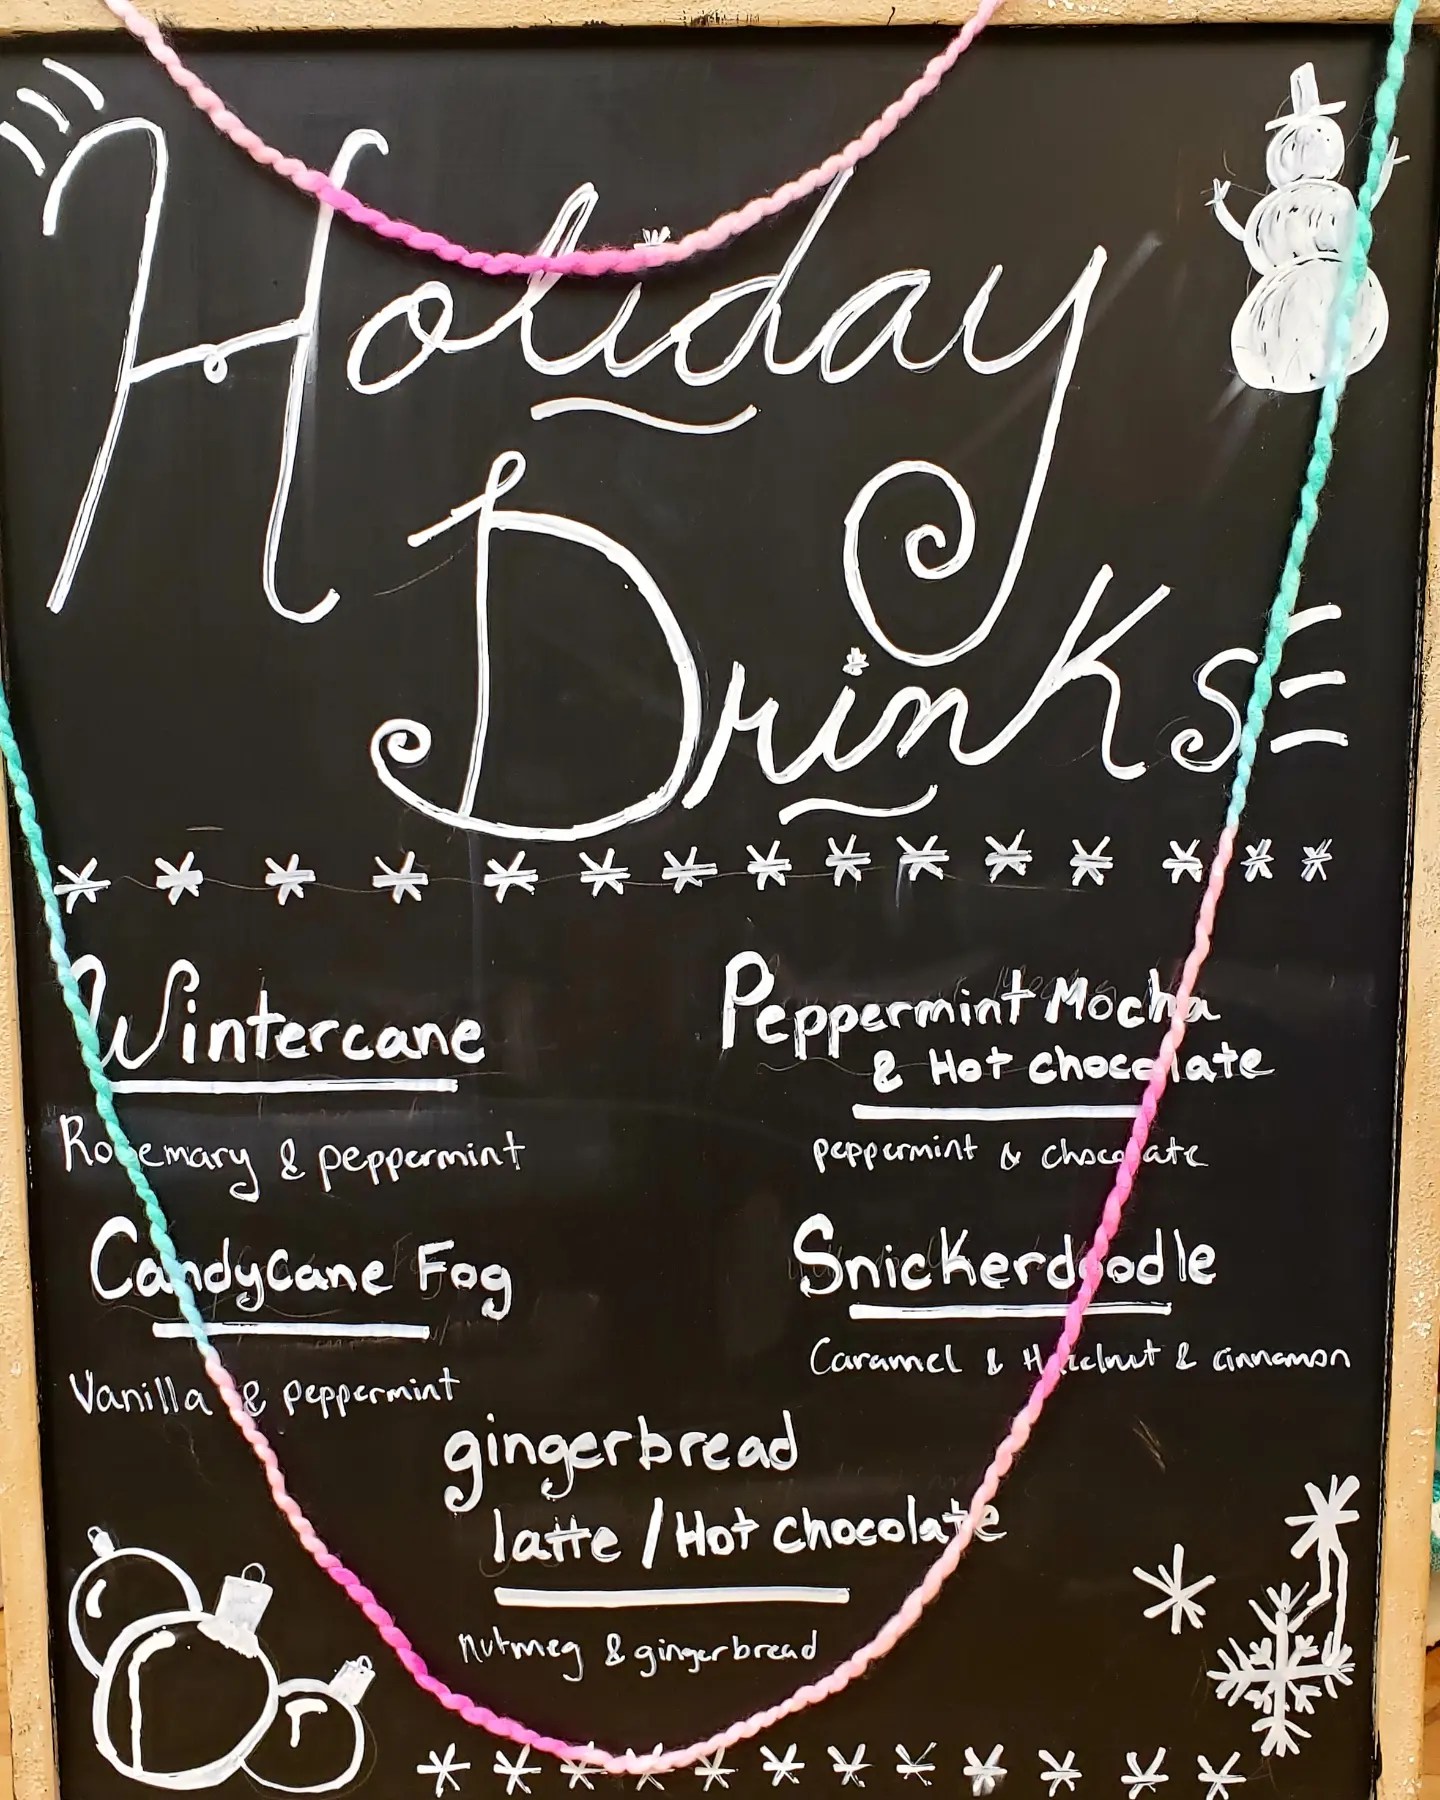 Holiday
Drinks
Wintercane
Rosemary & peppermint
Peppermint Mocha
& Hot chocolate
peppermint & chocolate
Candycane Fog
Vanilla & peppermint
Snickerdoodle
Caramel & Hazelnut & cinnamon
gingerbread
latte / Hot chocolate
nutmeg & gingerbread